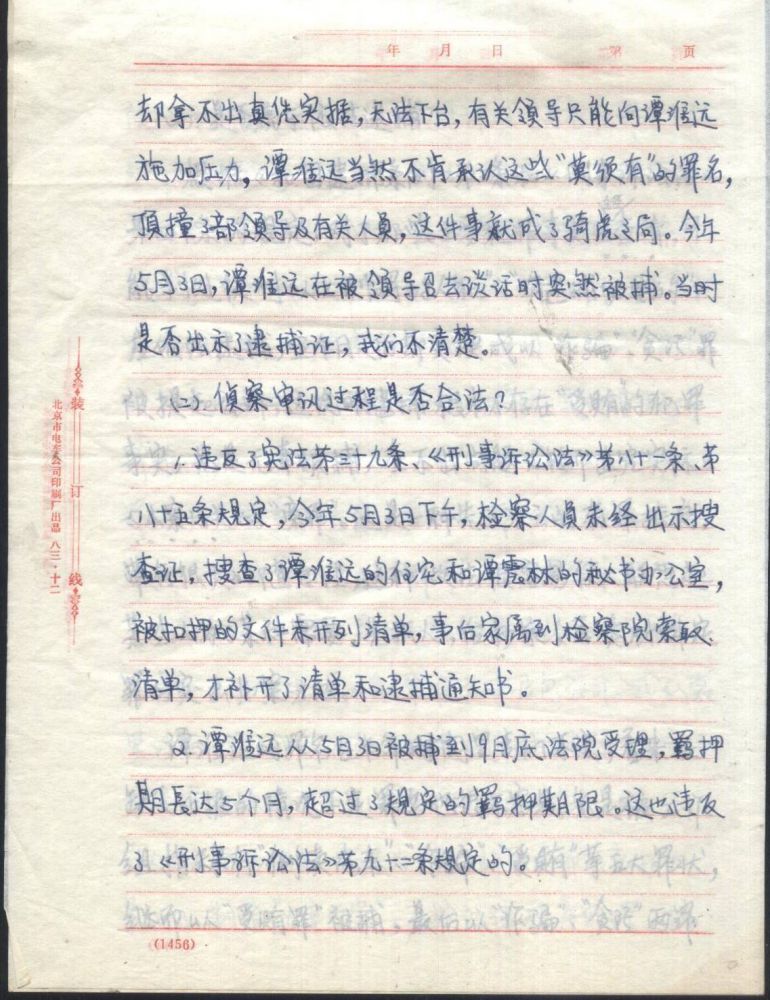 年 月 日 第 页
却拿不出真凭实据，无法下台，有关领导只能向谭淮远
施加压力，谭淮远当然不肯承认这些“莫须有”的罪名，
頂撞了部领导及有关人员，这件事就成了骑虎之局。今年
5月3日，谭淮远在被领导召去谈话时突然被捕。当时
是否出示了逮捕证，我们不清楚。
(二)、侦察审讯过程是否合法？
1. 违反了宪法第三十九条、《刑事诉讼法》第八十一条、第
八十五条规定，今年5月3日下午，检察人员未经出示搜
查证，搜查了谭淮远的住宅和谭震林的秘书办公室，
被扣押的文件未开列清单，事后家属到检察院索取
清单，才补开了清单和逮捕通知书。
2. 谭淮远从5月3日被捕到9月底法院受理，羁押
期長达5个月，超过了规定的羁押期限。这也违反
了《刑事诉讼法》第九十二条规定的。
(1456)
装订线
北京市电车公司印刷厂出品 八三·十二